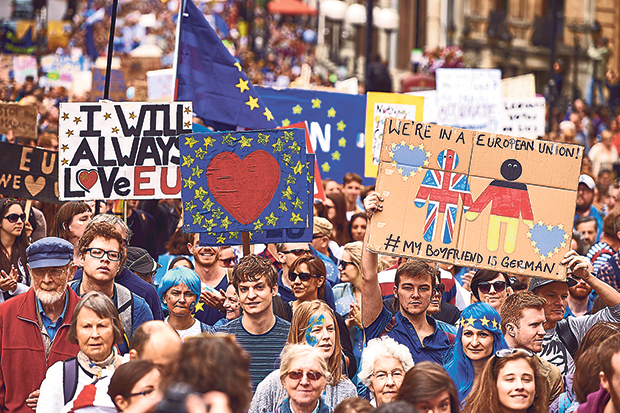 I WILL
ALWAYS
LOVE EU
EU
WE
WE'RE IN A EUROPEAN UNION!
# MY BOYFRIEND IS GERMAN.